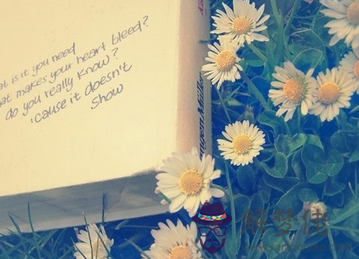 at is it you need
at makes your heart bleed?
do you really know?
'cause it doesn't
show
解梦佳